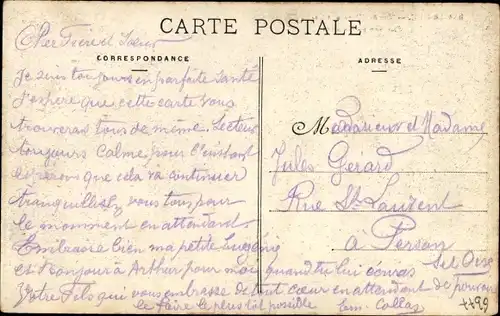 CARTE POSTALE
CORRESPONDANCE
ADRESSE
Cher Frère et Soeur
Je suis toujours en parfaite santé
J'espère que cette carte vous
trouveras tous de même. Secteur
toujours calme pour l'instant
que cela va continuer
vous tous pour
le momment en attendant
Embrasse bien ma petite
et Bonjour à Arthur pour moi quand tu lui écriras
Votre Fils qui vous embrasse de tout cœur en attendant de pouvoir
le faire le plus tôt possible
Monsieur et Madame
Jules Gérard
Rue St Laurent
à Persan
Set Oise